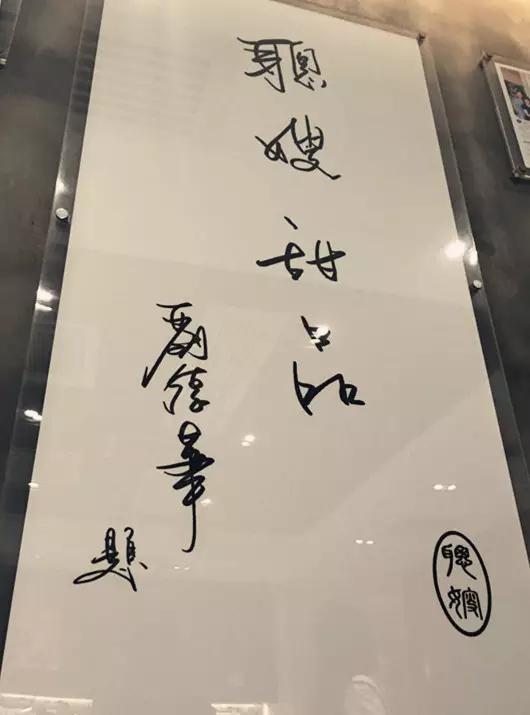 聰嫂甜品
劉德華
題
聰嫂